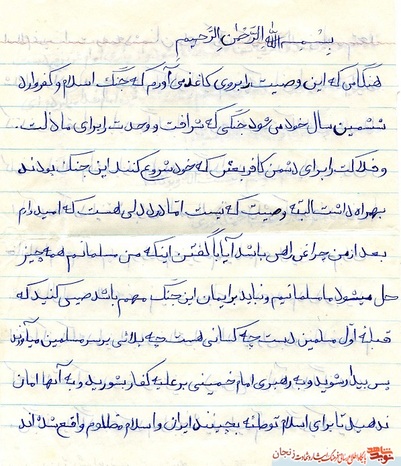 بِسْمِ اللهِ الرَّحْمٰنِ الرَّحِیمِ
هنگامی که این وصیت را بروی کاغذ می آورم که جنگ اسلام و کفر وارد
ششمین سال خود می شود جنگی که شرافت و وحدت را برای ما ذلت
و فلاکت را برای دشمن کافر بعثی که خود شروع کنند این جنگ بودند
بهمراه داشت البته وصیت که نیست اما درد دلی هست که امیدوارم
بعد از من چراغی راهی باشد آیا با گفتن اینکه من مسلمانم همه چیز
حل میشود ما مسلمانیم و نباید برایمان این جنگ مهم باشد صبی کنید که
قبله اول مسلمین دست چه کسانی هست چه بلائی بر سر مسلمین میآورند
پس بیدار شوید و به رهبری امام خمینی بر علیه کفار بشورید و به آنها امان
ندهید تا برای اسلام توطئه بچینند ایران و اسلام مظلوم واقع شده اند
نوید شاهد زنجان